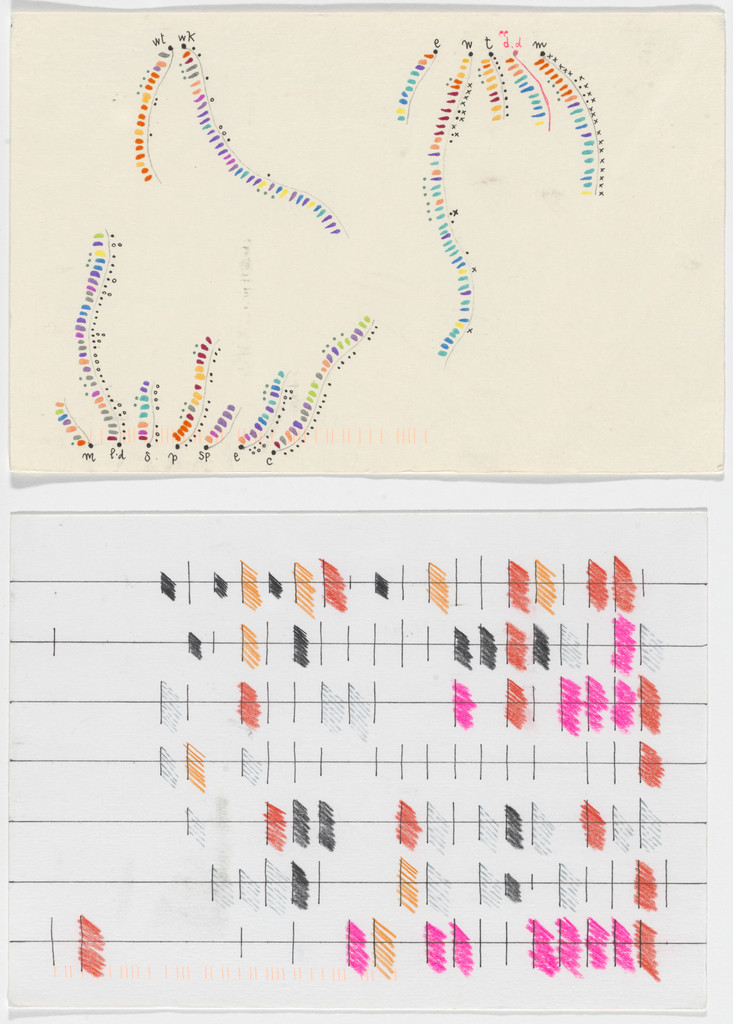 wt wk e w t d.d m
m p.d s. p sp e c